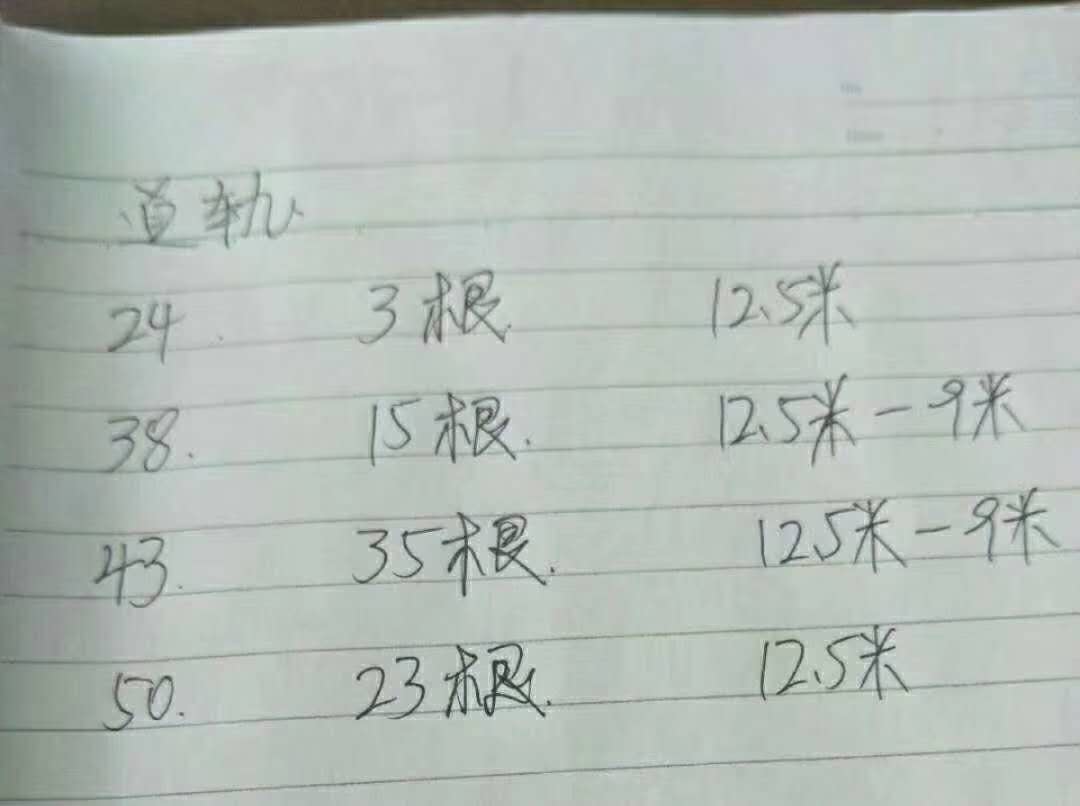 道轨
24. 3根. 12.5米
38. 15根. 12.5米-9米
43. 35根. 12.5米-9米
50. 23根. 12.5米